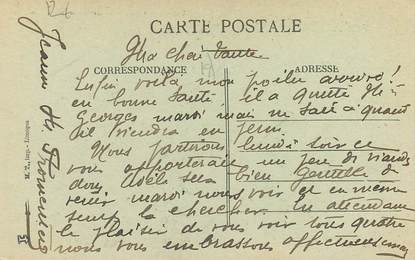 CARTE POSTALE
Ma chère Tante
CORRESPONDANCE
ADRESSE
Enfin voilà mon poilu arrivé !
en bonne santé, il a quitté St
Georges mardi mais ne sait à quand
il viendra en perm
Nous partirons lundi soir et
vous apporterait un peu de viande
donc sera bien gentille de
venir mardi nous voir et en même
temps la chercher. En attendant
le plaisir de vous voir tous quatre
nous vous embrassons affectueusement
Jeanne
M. T., imp. Limoges